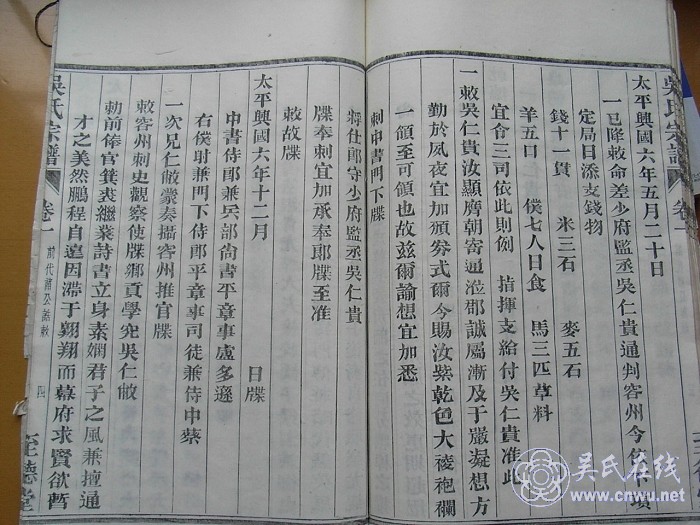 吳氏宗譜
太平興國六年五月二十日
一已降敕命差少府監丞吳仁貴通判容州今依下項
定局日添支錢物
錢十一貫 米三石 麥五石
羊五口 傔七人日食 馬三匹草料
宜令三司依此則例 指揮支給付吳仁貴准此
一敕吳仁貴汝顯膺朝寄通涖郡誠屬漸及于嚴凝想方
勤於夙夜宜加頒劵式爾今賜汝紫乾色大祾袍襴
一領至可領也故茲爾諭想宜加悉
剌中書門下牒
將仕郎守少府監丞吳仁貴
牒奉剌宜加承奉郎牒至准
敕故牒
太平興國六年十二月 日牒
中書侍郎兼兵部尚書平章事盧多遜
右僕射兼門下侍郎平章事司徒兼侍中蔡
一次兄仁敝蒙奏攝容州推官牒
敕容州刺史觀察使牒鄉貢學究吳仁敝
勅前俸官箕裘繼業詩書立身素嫻君子之風兼擅通
才之美然鵬程自遠因滯于翱翔而幕府求賢欲暫
吳氏宗譜
卷一
前代
四
至德堂
吴氏在线
www.cnwu.net